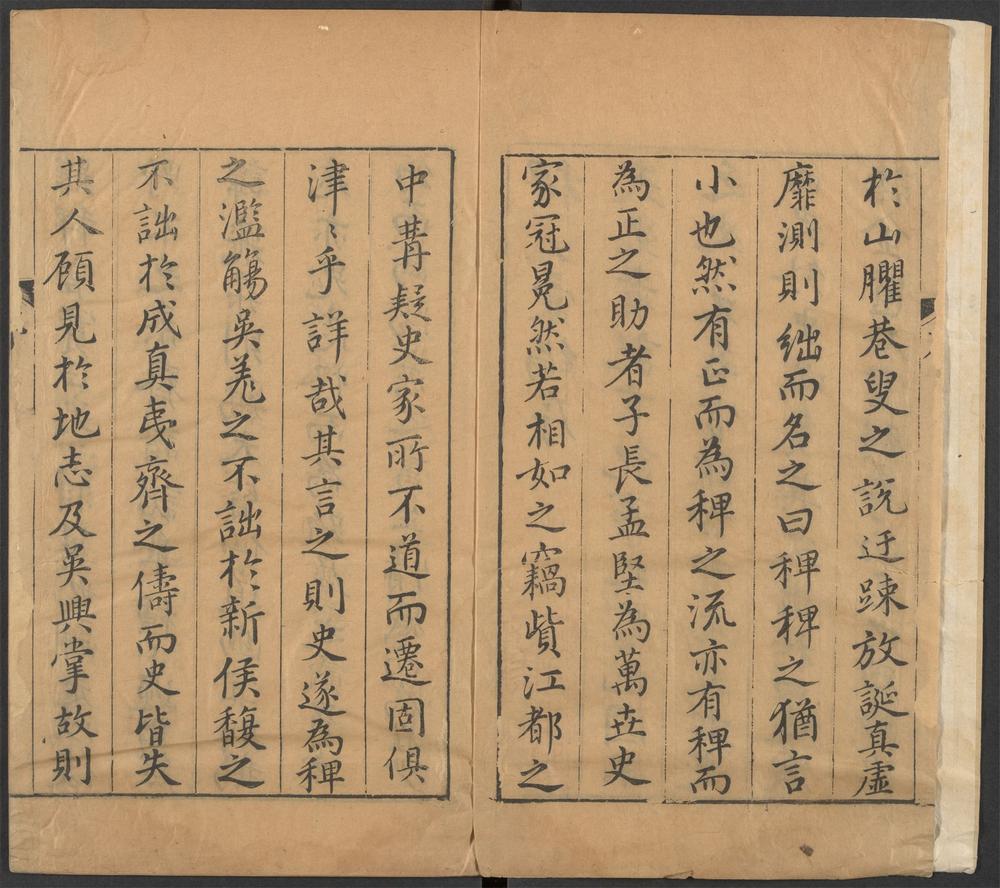 於山臞巷叟之說迂踈放誕真虛
靡測則絀而名之曰稗稗之猶言
小也然有正而為稗之流亦有稗而
為正之助者子長孟堅為萬世史
家冠冕然若相如之竊貲江都之
中冓疑史家所不道而遷固俱
津〻乎詳哉其言之則史遂為稗
之濫觴吳羌之不詘於新侯馥之
不詘於成真夷齊之儔而史皆失
其人顧見於地志及吳興掌故則